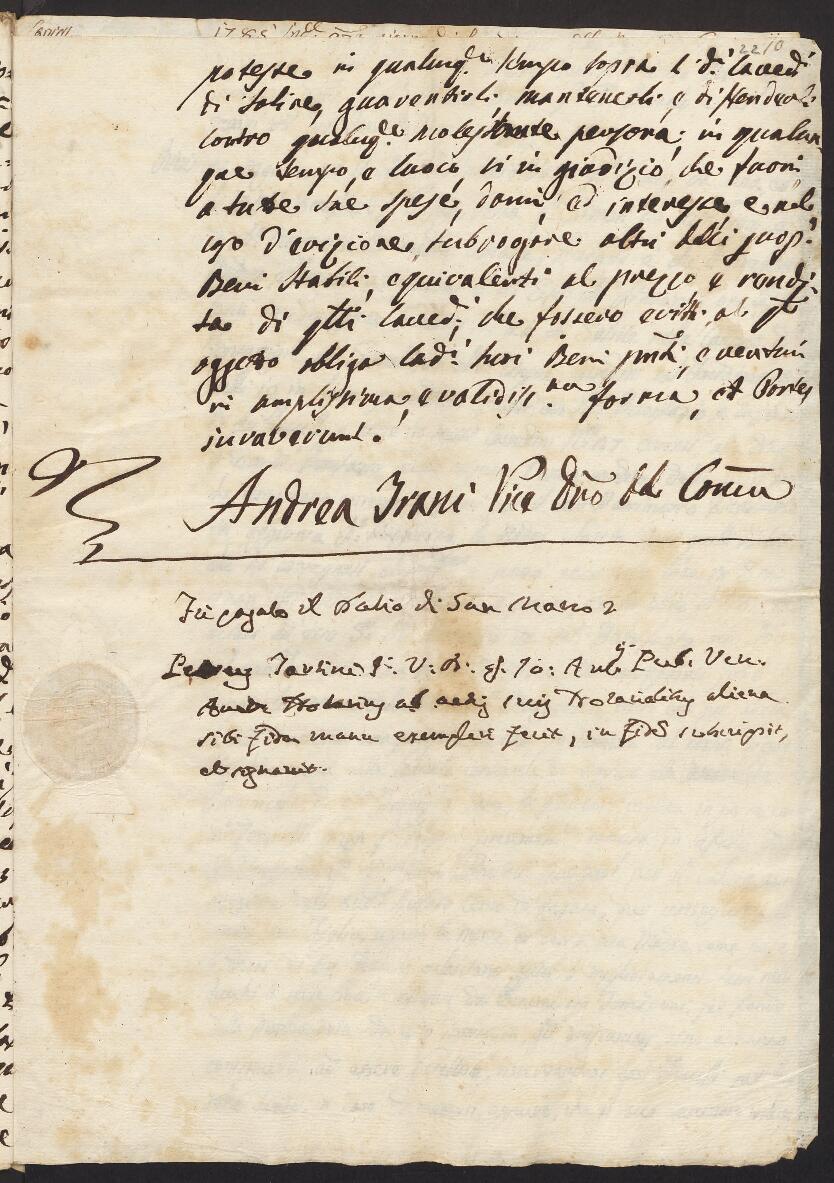 2210
potesse in qualunq.e tempo sopra li d.i Cavedi
di Saline, guarentirli, mantenerli, e diffenderli
contro qualunq.e molestante persona, in qualun-
que tempo, e luoco, sì in giudizio, che fuori
a tutte sue spese, danni, ed interesse, e nel
caso d'evizione, subrogare altri delli propr.i
Beni Stabili, equivalenti al prezzo, e rendi-
ta di q'tti Cavedi, che fossero evitti, al q'l
oggetto obliga lad.i suoi Beni p'nti, e venturi
in amplissima, e validiss.ma forma, et Partes
iuraverunt.
Andrea Vice D'no del Com'n
Fù pagato il Datio di San Marco 2
Petrus Tartini J: V: D: q. Jo: Ant.j Pub. Ven.
Notarius ab actis suis Notarialibus aliena
sibi fida manu exemplari fecit, in fidem subscripsit,
et signavit.